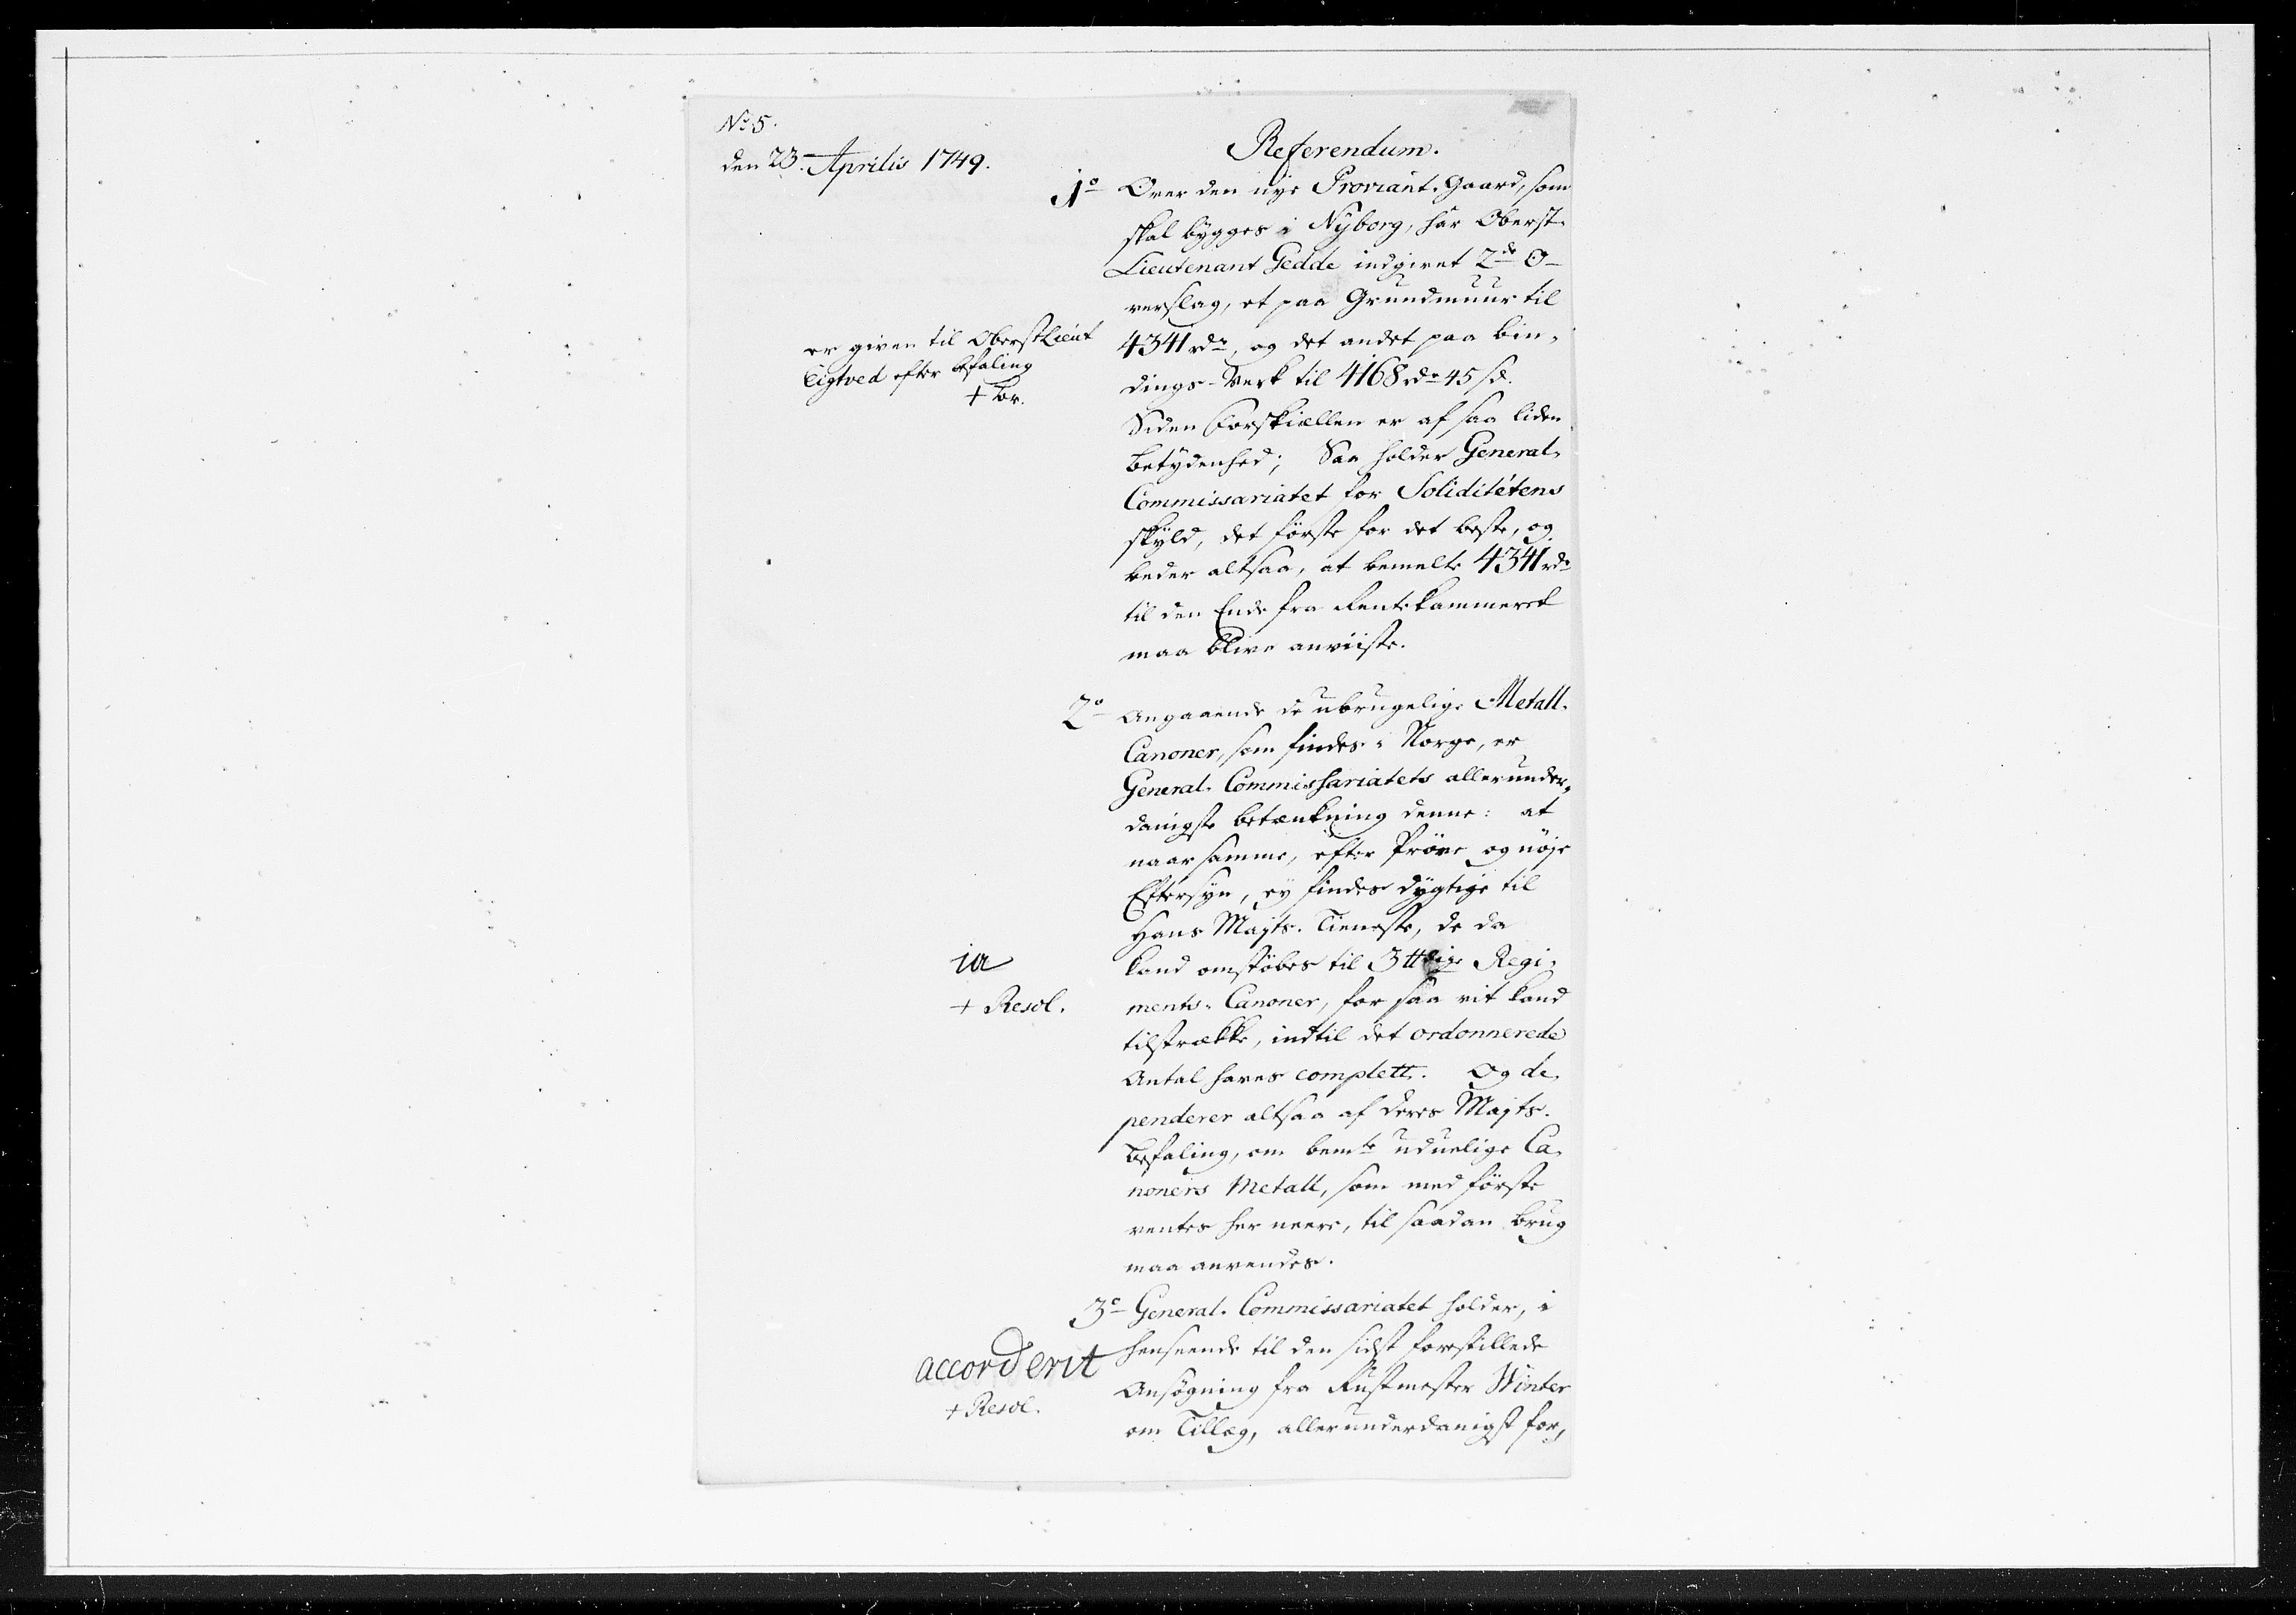 No 5.
den 23. Aprilis 1749.
Referendum.
1o Over den nye Proviant-Gaard, som
skal bygges i Nyborg, har Oberst-
Lieutenant Gedde indgivet 2de O-
verslag, et paa Grundmuur til
4341 rdr, og det andet paa bin-
dings-Verk til 4168 rdr 45 sk.
Siden Forskiællen er af saa liden
betydenhed; Saa holder General-
Commissariatet for Soliditétens
skyld, det förste for det beste, og
beder altsaa, at bemelte 4341 rdr
til den Ende fra Rentekammeret
maa blive anviiste.
er given til OberstLieut
Eigtved efter befaling
+ Br.
2o Angaaende de ubrugelige Metall-
Canoner, som findes i Norge, er
General-Commissariatets allerunder-
danigste betænkning denne: at
naar samme, efter Pröve og nöje
Eftersyn, ey findes dygtige til
Hans Majts. Tieneste, de da
kand omstöbes til 3 ttdige Regi-
ments-Canoner, for saa vit kand
tilstrække, indtil det ordonnerede
Antal haves complett. Og de-
penderer altsaa af deres Majts.
befaling, om bemte uduelige Ca-
noners Metall, som med förste
ventes her neere, til saadan brug
maa anvendes.
ia
+ Resol.
3o General-Commissariatet holder, i
henseende til den sidst forestillede
Ansögning fra Rustmester Winter
om Tillæg, allerunderdanigst for,
accorderit
+ Resol.